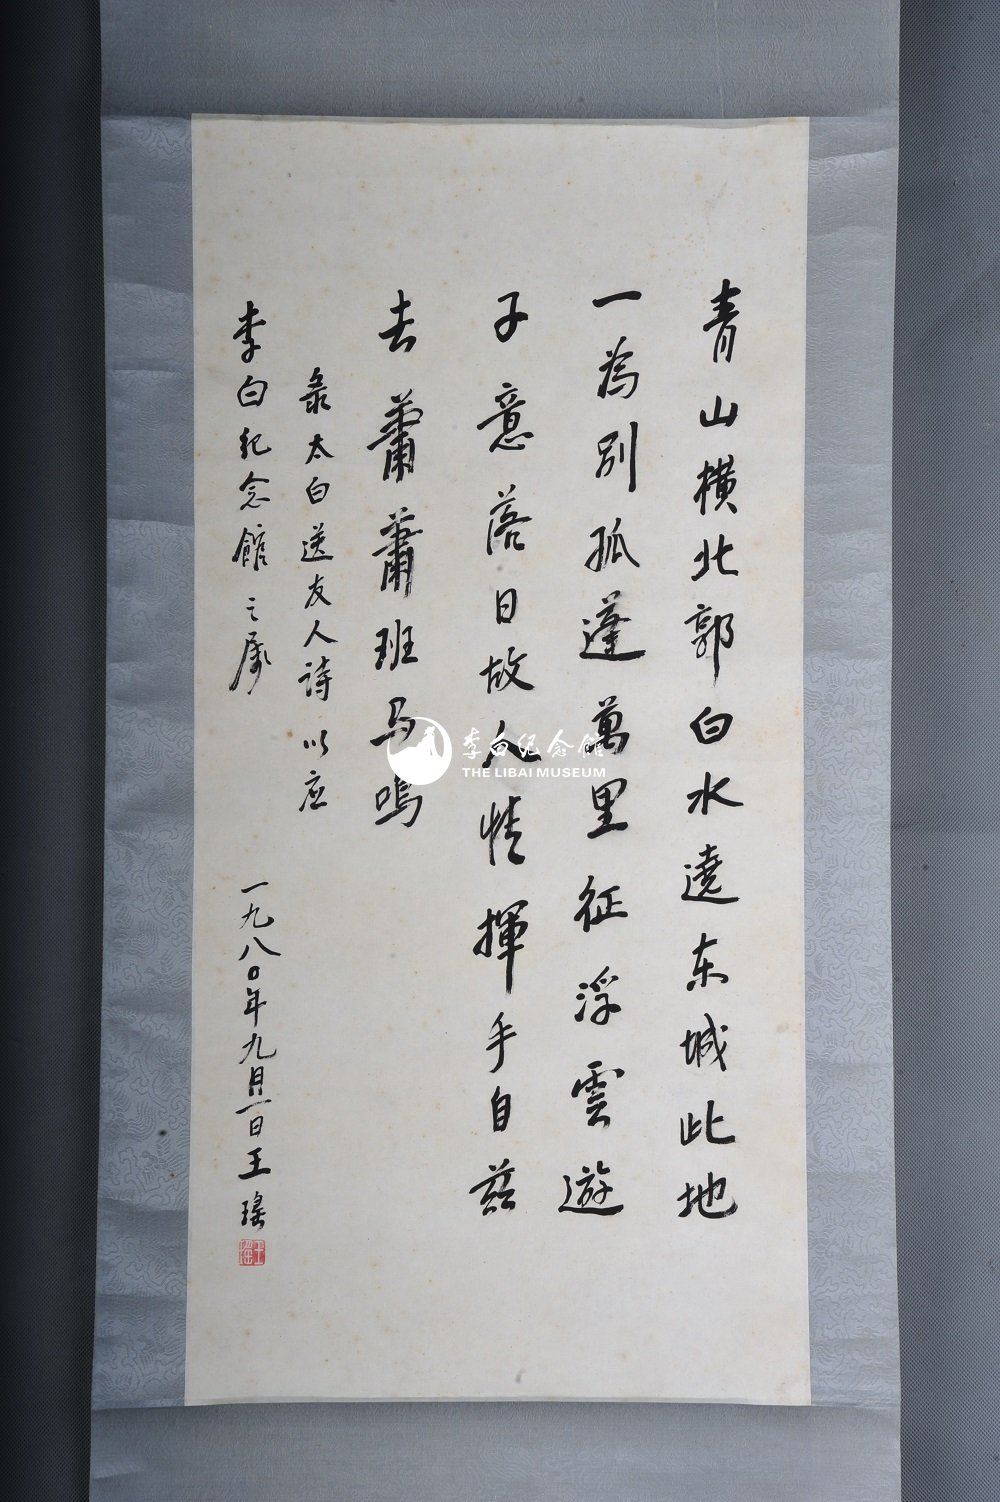 青山橫北郭白水遶东城此地
一為別孤蓬萬里征浮雲遊
子意落日故人情揮手自茲
去蕭蕭班马鳴
录太白送友人诗以应
李白紀念館之属
一九八〇年九月一日王瑤
王瑤
李白纪念館
THE LIBAI MUSEUM